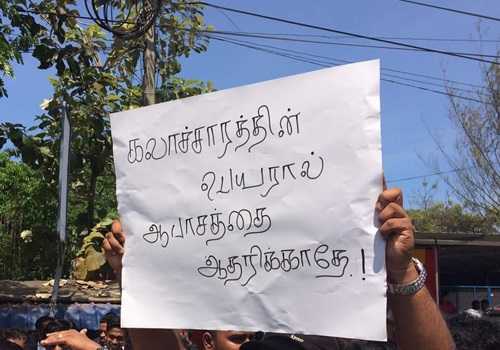 கலாச்சாரத்தின்
பெயரால்
ஆபாசத்தை
ஆதரிக்காதே.!